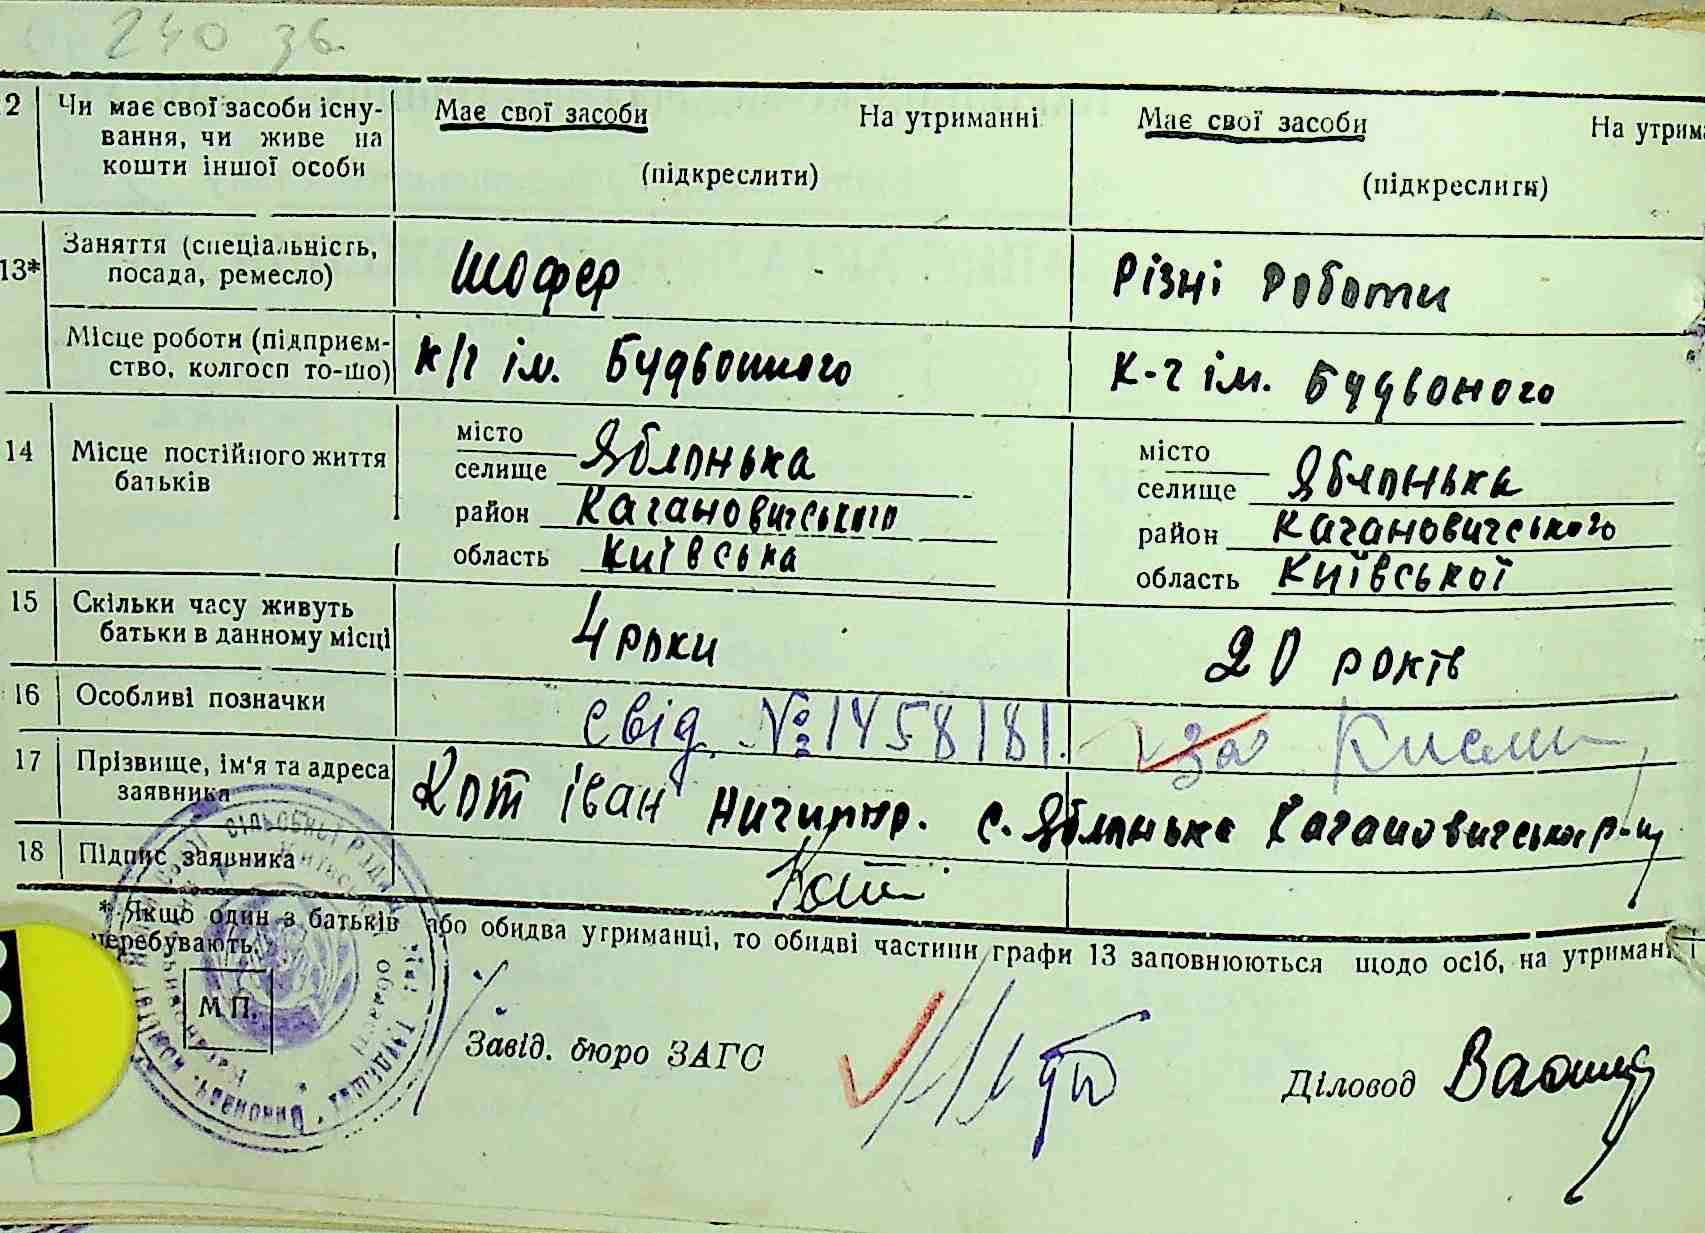 240 зв
2 Чи має свої засоби існу- Має свої засоби На утриманні Має свої засоби На утрима
вання, чи живе на
кошти іншої особи (підкреслити) (підкреслити)
13* Заняття (спеціальність, Шофер Різні роботи
посада, ремесло)
Місце роботи (підприєм- к/г ім. Будьонного К-г ім. Будьоного
ство, колгосп то-що)
14 Місце постійного життя місто місто
батьків селище Яблонька селище Яблонька
район Кагановичського район Кагановичського
область Київська область Київської
15 Скільки часу живуть 4 роки 20 років
батьки в данному місці
16 Особливі позначки свід. № 1458181. за
17 Прізвище, ім'я та адреса Кот Іван Ничипор. с. Яблонька Кагановичськ р-ну
заявника
18 Підпис заявника Кот
* Якщо один з батьків або обидва утриманці, то обидві частини графи 13 заповнюються щодо осіб, на утриманні
перебувають.
М П.
Завід. бюро ЗАГС Діловод